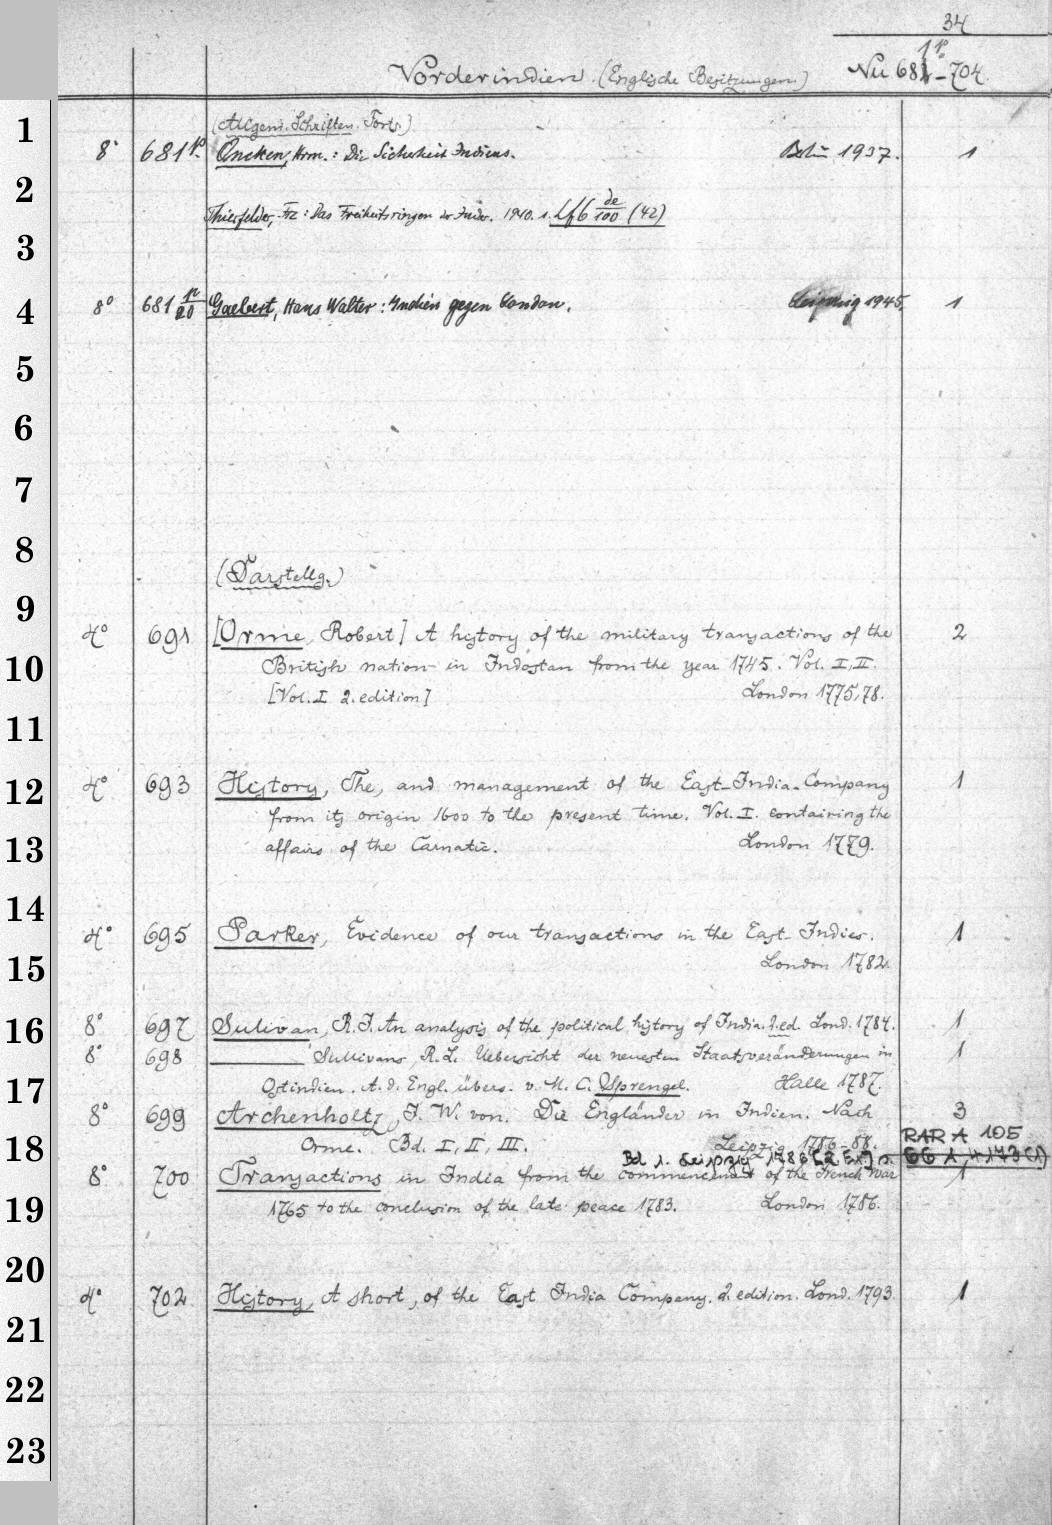 34
Vorderindien. (Englische Besitzungen) Nu 681 1p - 704.
(Allgem. Schriften. Forts.)
1
8° 681 1p Oncken, Herm.: Die Sicherheit Indiens. Berlin 1937. 1
2
Thierfelder, Frz: Das Freiheitsringen der Inder. 1940. s. Lf6 de/100 (42)
3
4 8° 681 1p/20 Gaebert, Hans Walter: Indien gegen London. Leipzig 1945. 1
5
6
7
8
(Darstellg.)
9
4° 691 [Orme, Robert] A history of the military transactions of the 2
10 British nation in Indostan from the year 1745. Vol. I, II.
[Vol. I 2. edition] London 1775, 78.
11
12 4° 693 History, The, and management of the East-India-Company 1
from its origin 1600 to the present time. Vol. I. containing the
13 affairs of the Carnatic. London 1779.
14
4° 695 Parker, Evidence of our transactions in the East-Indies. 1
15 London 1782.
16 8° 697 Sulivan, R. J. An analysis of the political history of India. 2. ed. Lond. 1784. 1
8° 698 ——— Sullivans, R. L. Uebersicht der neuesten Staatsveränderungen in 1
17 Ostindien. A. d. Engl. übers. v. M. C. Sprengel. Halle 1787.
8° 699 Archenholtz, J. W. von. Die Engländer in Indien. Nach 3
18 Orme. Bd. I, II, III. Leipzig 1786-88. RAR A 105
Bd 1. Leipzig 1786 [2. Ex.] s. 66 A 4173 (1)
8° 700 Transactions in India from the commencement of the French War 1
19 1765 to the conclusion of the late peace 1783. London 1786.
20
4° 702 History, A short, of the East India Company. 2. edition. Lond. 1793. 1
21
22
23